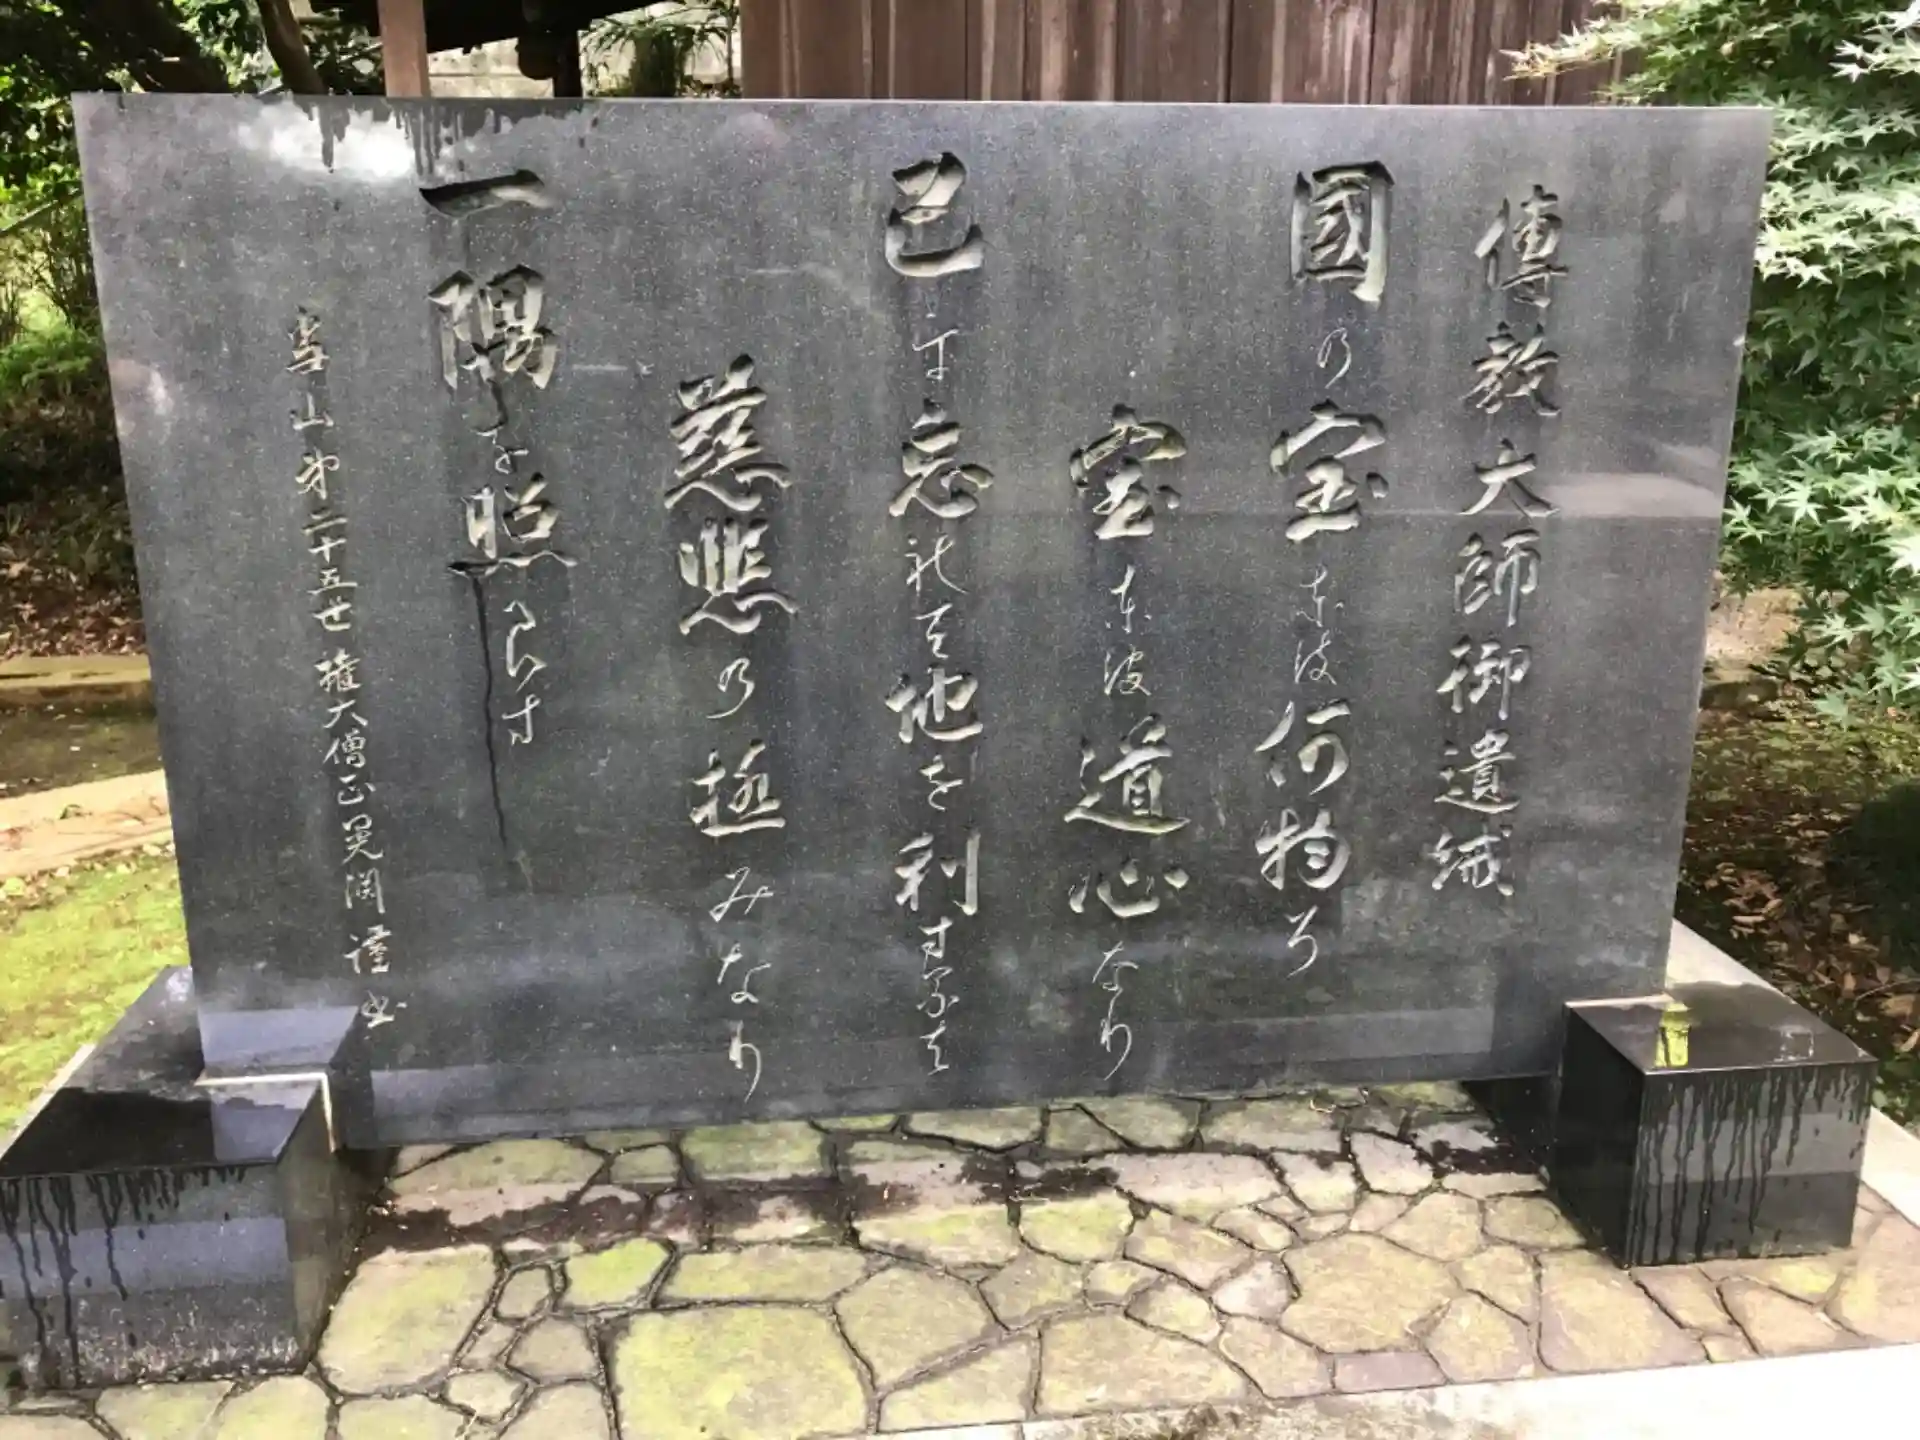 傳教大師御遺誡
國の宝とは何物ぞ
宝とは道心なり
己を忘れて他を利するは
慈悲の極みなり
一隅を照らす
当山第二十五世 権大僧正晃渕謹書